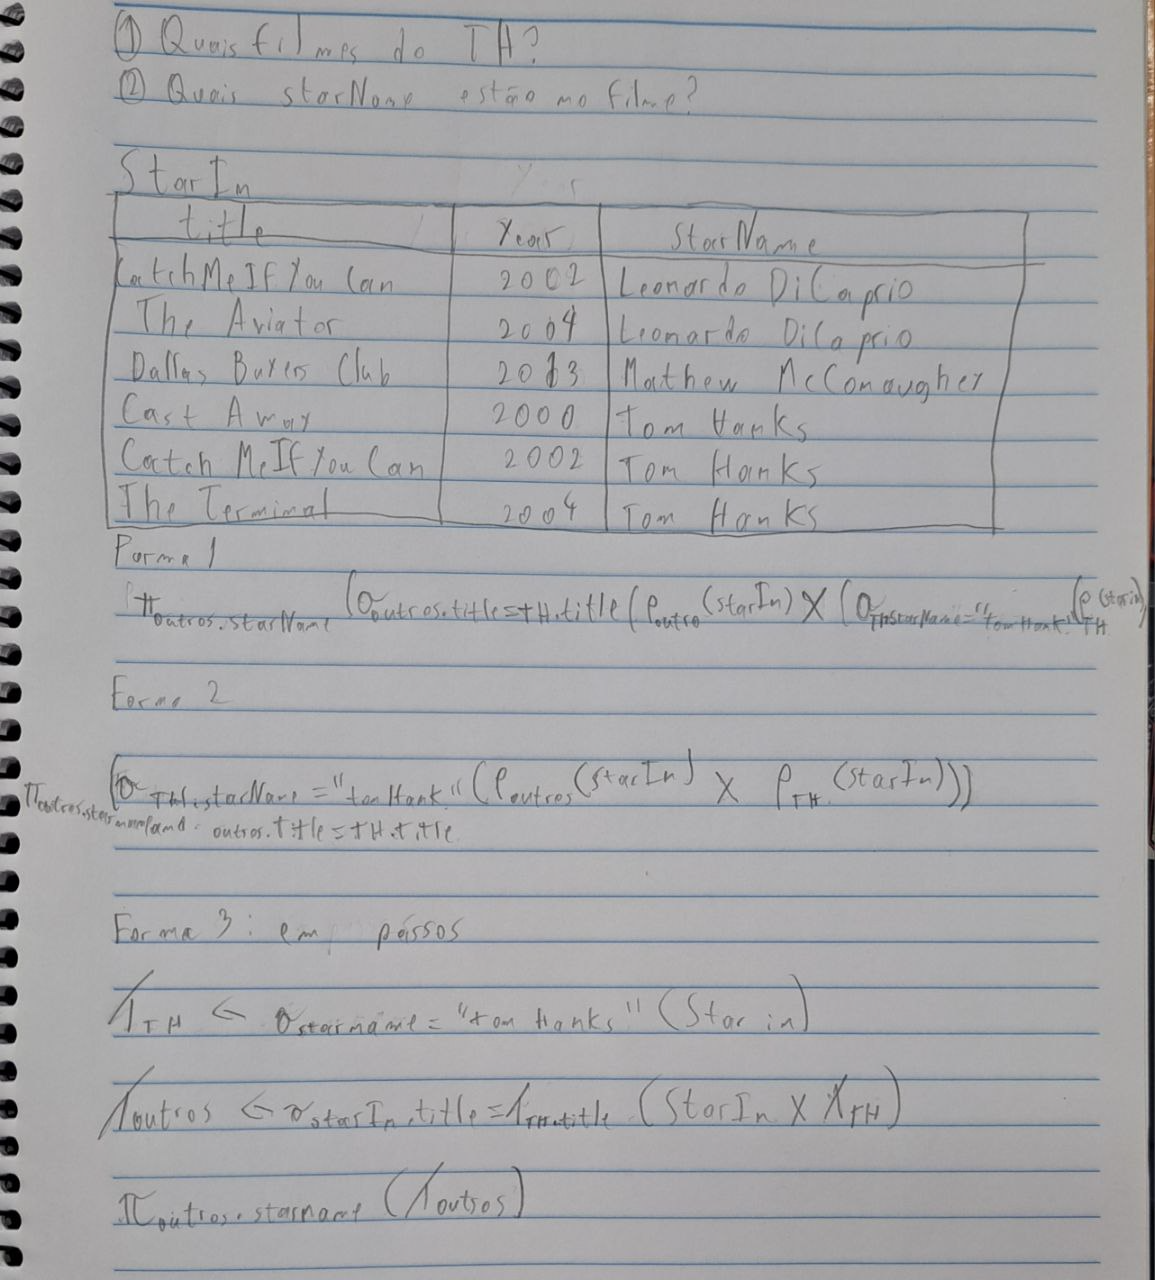 ① Quais filmes do TH?
② Quais starName estão no filme?
StarIn
title Year StarName
CatchMeIfYou Can 2002 Leonardo DiCaprio
The Aviator 2004 Leonardo DiCaprio
Dallas Buyers Club 2013 Mathew McConaugher
Cast Away 2000 Tom Hanks
Catch MeIfYou Can 2002 Tom Hanks
The Terminal 2004 Tom Hanks
Forma 1
π outros.starName (σ outros.title=TH.title (ρ outro (starIn) X (σ TH.starName="tom Hank" (ρ TH (starin)
Forma 2
π outros.starname (σ TH.starName="tom Hank" and outros.title=TH.title (ρ outros (StarIn) X ρ TH (StarIn)))
Forma 3: em passos
TH ← σ starname = "tom Hanks" (Star in)
outros ← σ starIn.title = TH.title (StarIn X TH)
π outros.starname (outros)